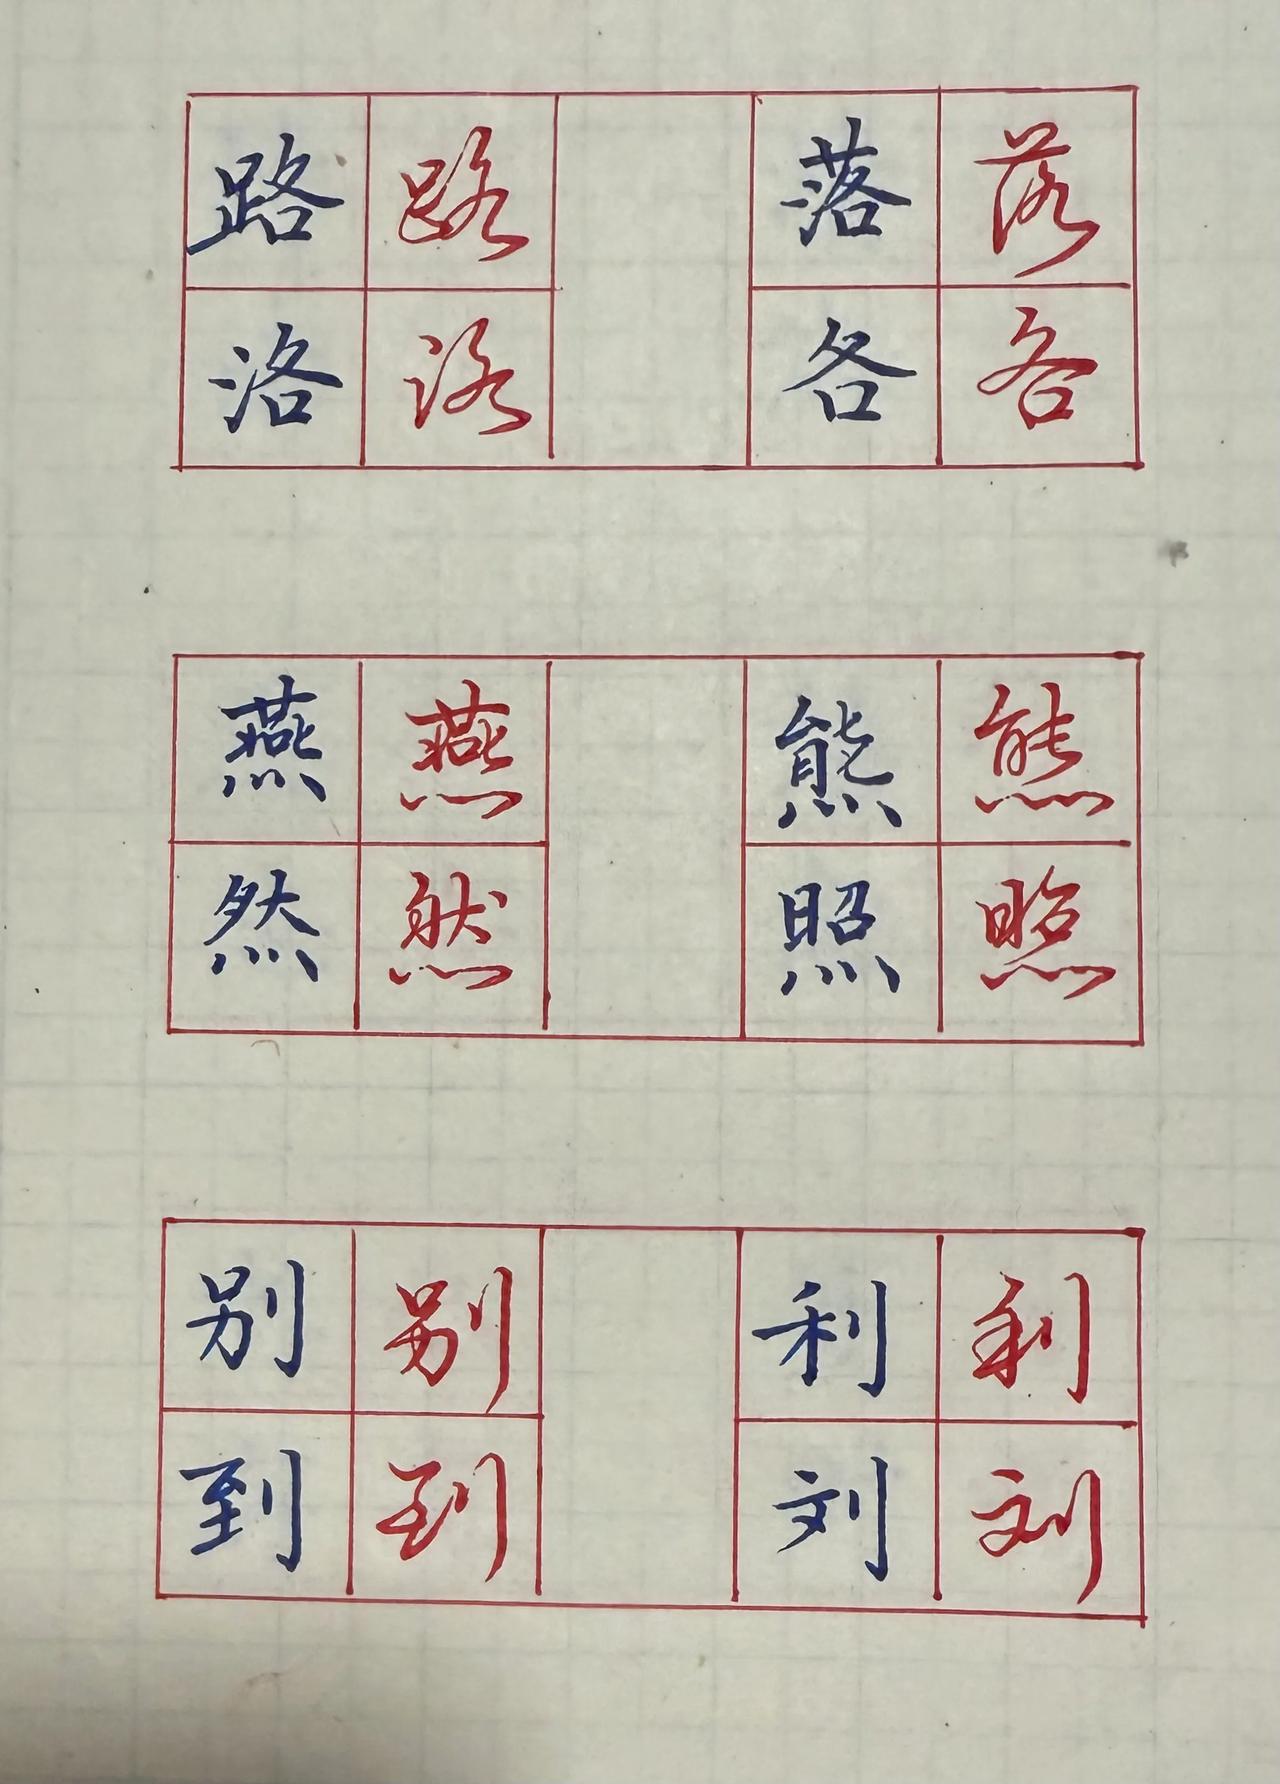 路 路 落 落
洛 洛 各 各
燕 燕 熊 熊
然 然 照 照
别 别 利 利
到 到 刘 刘